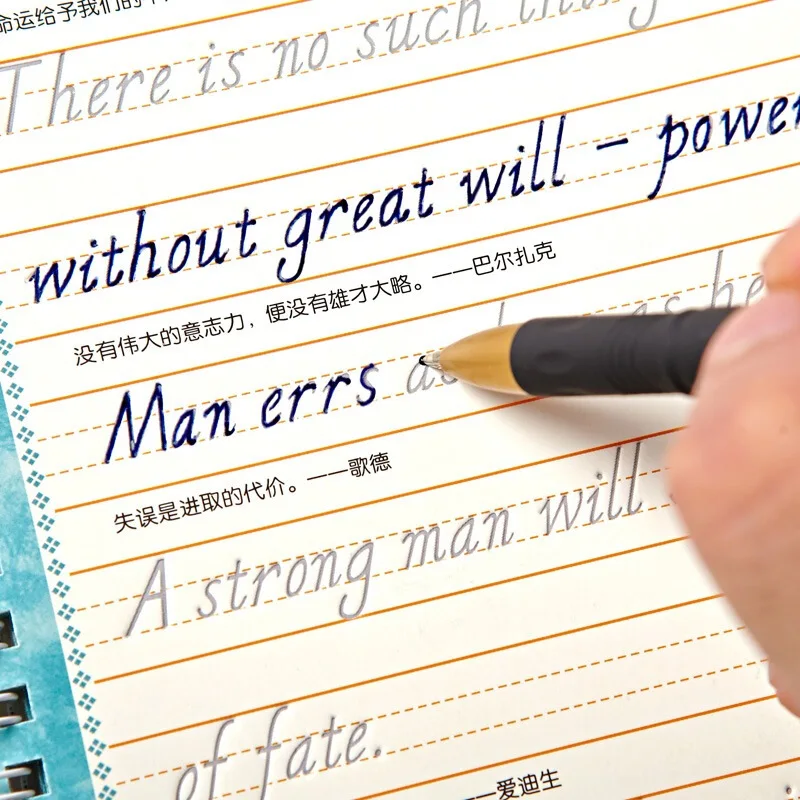 命运给予我们的
There is no such thing
without great will - power
没有伟大的意志力，便没有雄才大略。——巴尔扎克
Man errs as he
失误是进取的代价。——歌德
A strong man will
of fate.
——爱迪生